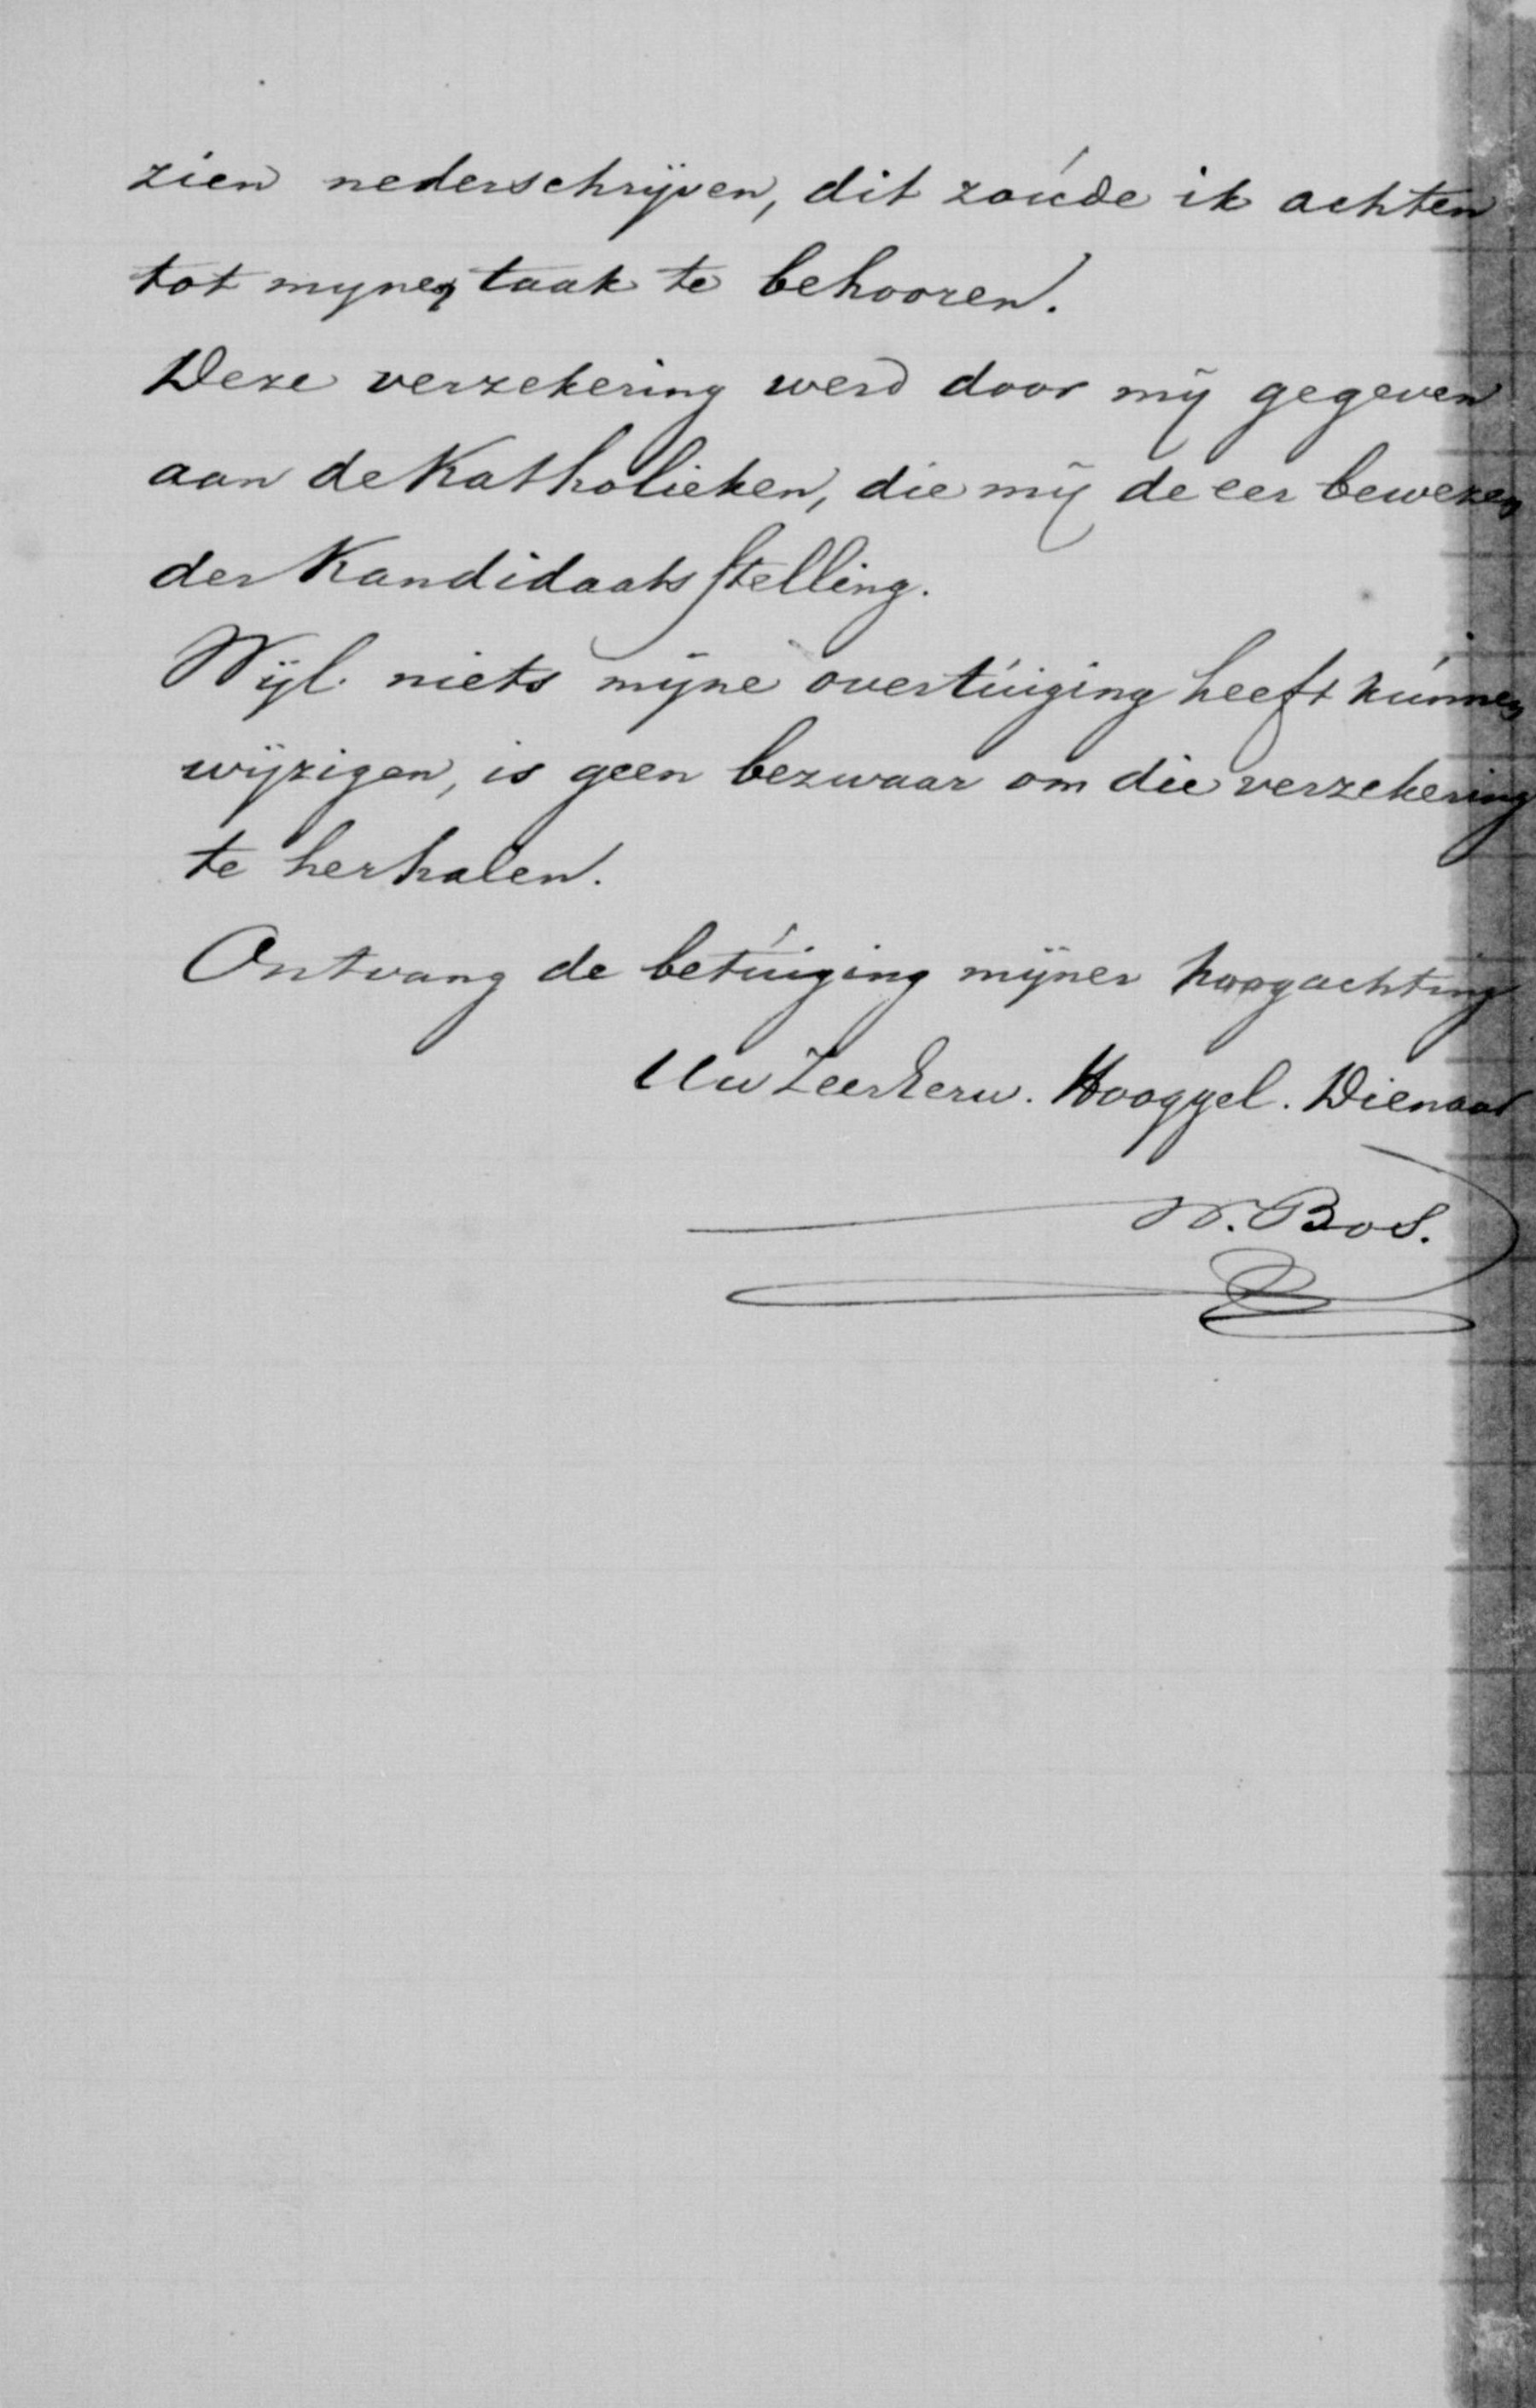 zien nederschrijven, dit zoude ik achten
tot mijne taak te behooren.
Deze verzekering werd door mij gegeven
aan de Katholieken, die mij de eer bewezen
der Kandidaatsstelling.
Wijl niets mijne overtuiging heeft kunnen
wijzigen, is geen bezwaar om die verzekering
te herhalen.
Ontvang de betuiging mijner hoogachting
Uw ZeerEerw. Hooggel. Dienaar
W. Bos.